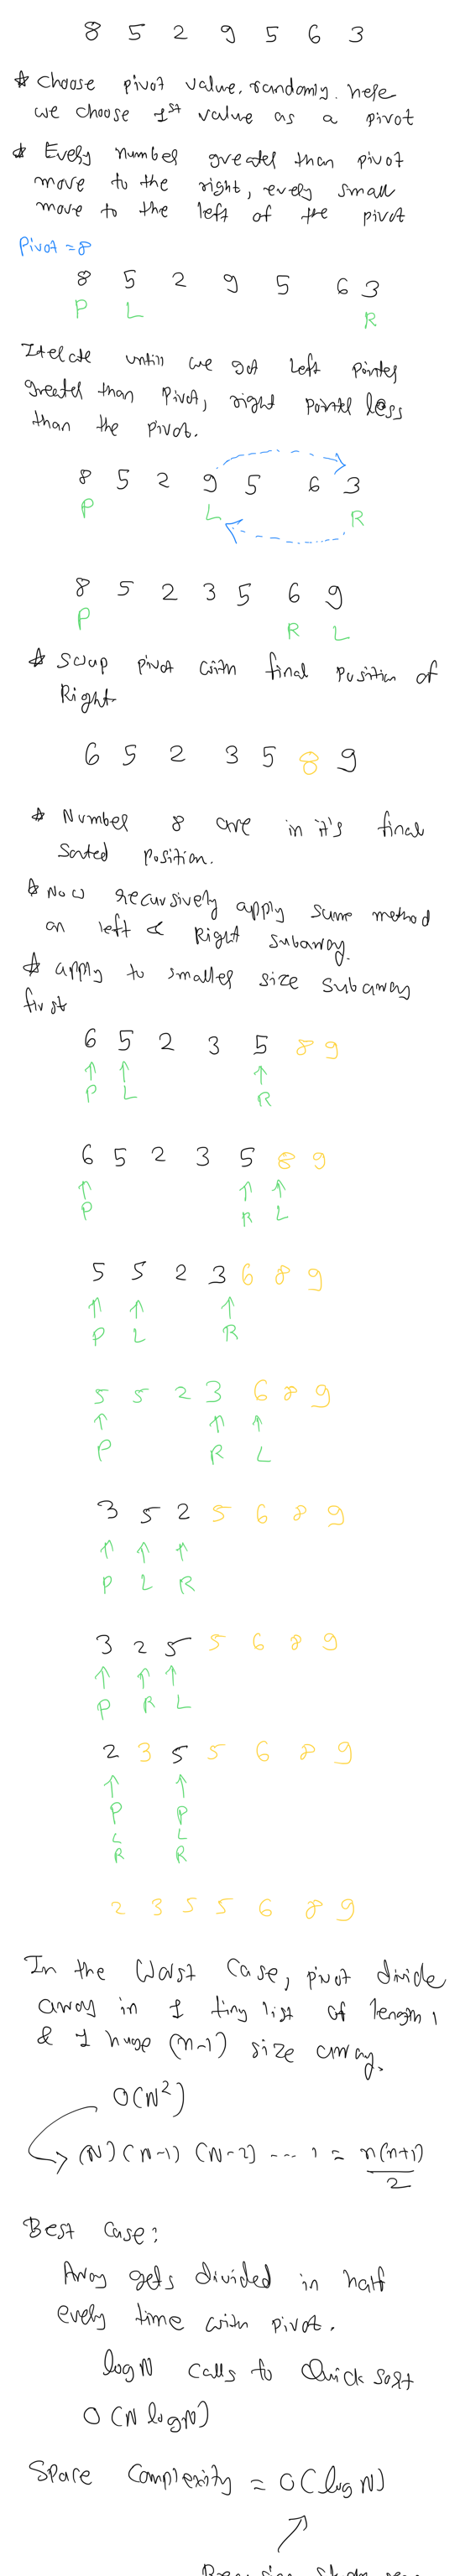 8 5 2 9 5 6 3
* Choose pivot value, randomly. here
we choose 1st value as a pivot
* Every number greater than pivot
move to the right, every small
move to the left of the pivot
Pivot = 8
8 5 2 9 5 6 3
P L R
Iterate untill we got left pointer
greater than pivot, right pointer less
than the pivot.
8 5 2 9 5 6 3
P L R
8 5 2 3 5 6 9
P R L
* Swap pivot with final position of
Right
6 5 2 3 5 8 9
* Number 8 are in it's final
sorted position.
* Now recursively apply same method
on left & Right subarray.
* apply to smaller size subarray
first
6 5 2 3 5 8 9
P L R
6 5 2 3 5 8 9
P R L
5 5 2 3 6 8 9
P L R
5 5 2 3 6 8 9
P R L
3 5 2 5 6 8 9
P L R
3 2 5 5 6 8 9
P R L
2 3 5 5 6 8 9
P P
L L
R R
2 3 5 5 6 8 9
In the Worst Case, pivot divide
array in 1 tiny list of length 1
& 1 huge (n-1) size array.
O(N²)
(N) (N-1) (N-2) --- 1 = n(n+1)
2
Best Case:
Array gets divided in half
every time with pivot.
log N calls to Quick sort
O(N log N)
Space Complexity = O(log N)